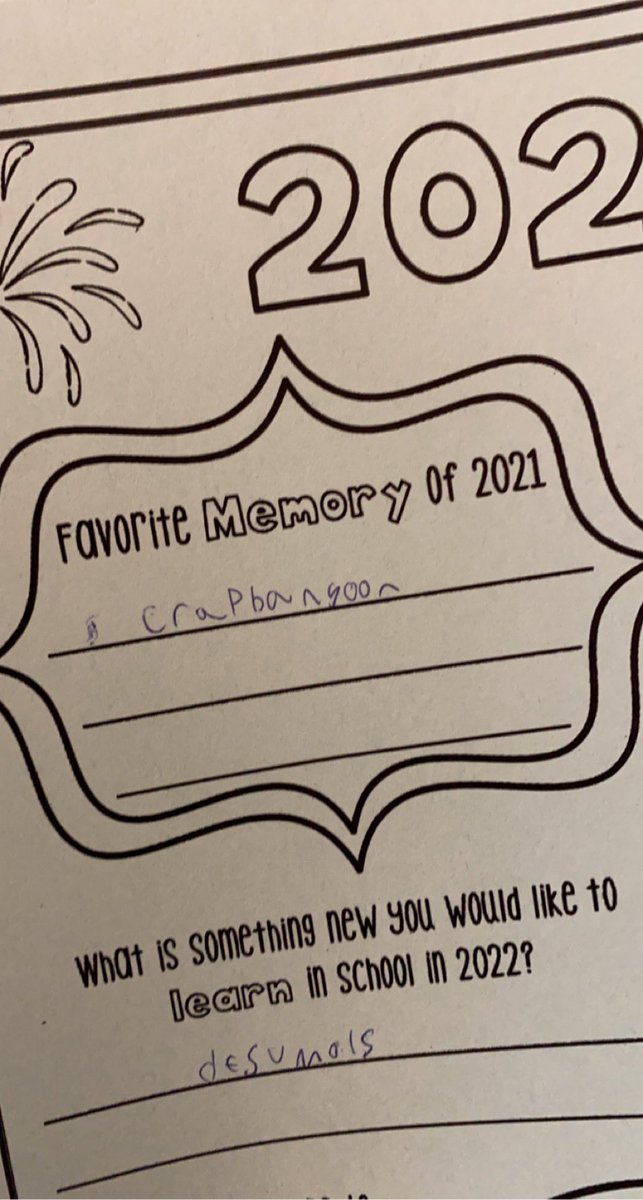 202
Favorite Memory Of 2021
crapbangoon
What is something new you would like to
learn in school in 2022?
desumals